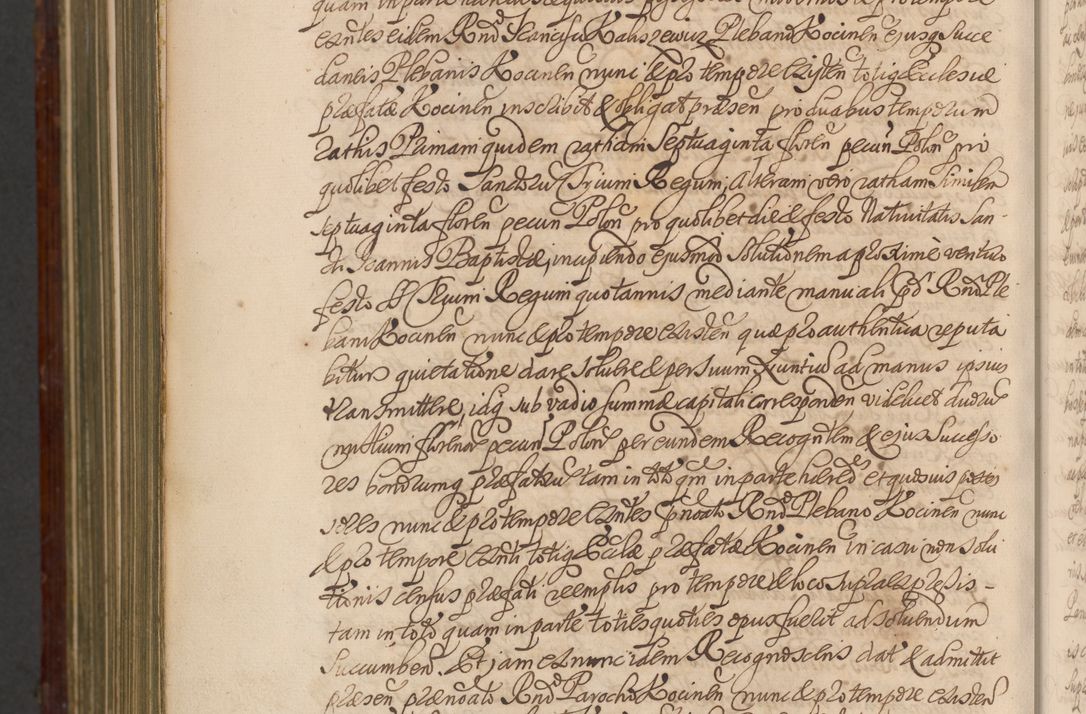 quam in parte
exntes eidem Rndo Francisco Plebano Kocinen ejusq succe
daneis Plebanis Kocinen nunc & pro tempore existen totiq Ecclesiæ
præfatæ Kocinen inscribit & obligat præsen pro duabus temporum
rathis Primam quidem ratham Septuaginta floren pecun Polon pro
quolibet festo Sanctoru Trium Regum, Alteram vero ratham similem
Septuaginta floren pecun Polon pro quolibet die & festo Nativitatis San-
cti Joannis Baptistæ, incipiendo ejusmod solutionem a proxime venturo
festo SS Trium Regum quotannis mediante manuali pd Rndi Ple
bani Kocinen nunc & pro tempore existen quæ pro authentica reputa
bitur quietatione dare solvere & per suum Nuntiu ad manus ipsius
transmittere, idq sub vadio summæ capitali corresponden videlicet duoru
millium florenor pecun Polon per eundem Recognten & ejus Successo
res bonorumq præfatoru tam in toto qm in parte hæredes et quosvis posses
sores nunc & pro tempore exntes pnoato Rndo Plebano Kocinen nunc
& pro tempore exnti totiq Ecclæ præfatæ Kocinen in casu non solu
tionis census præfati reemplis pro tempore & loco supra expressis -
tam in toto quam in parte toties quoties opus fuerit ad solvendum
succumben. Et jam ex nunc idem Recognoscens dat & admittit
præsen prænoato Rndo Parocho Kocinen nunc & pro tempore existen